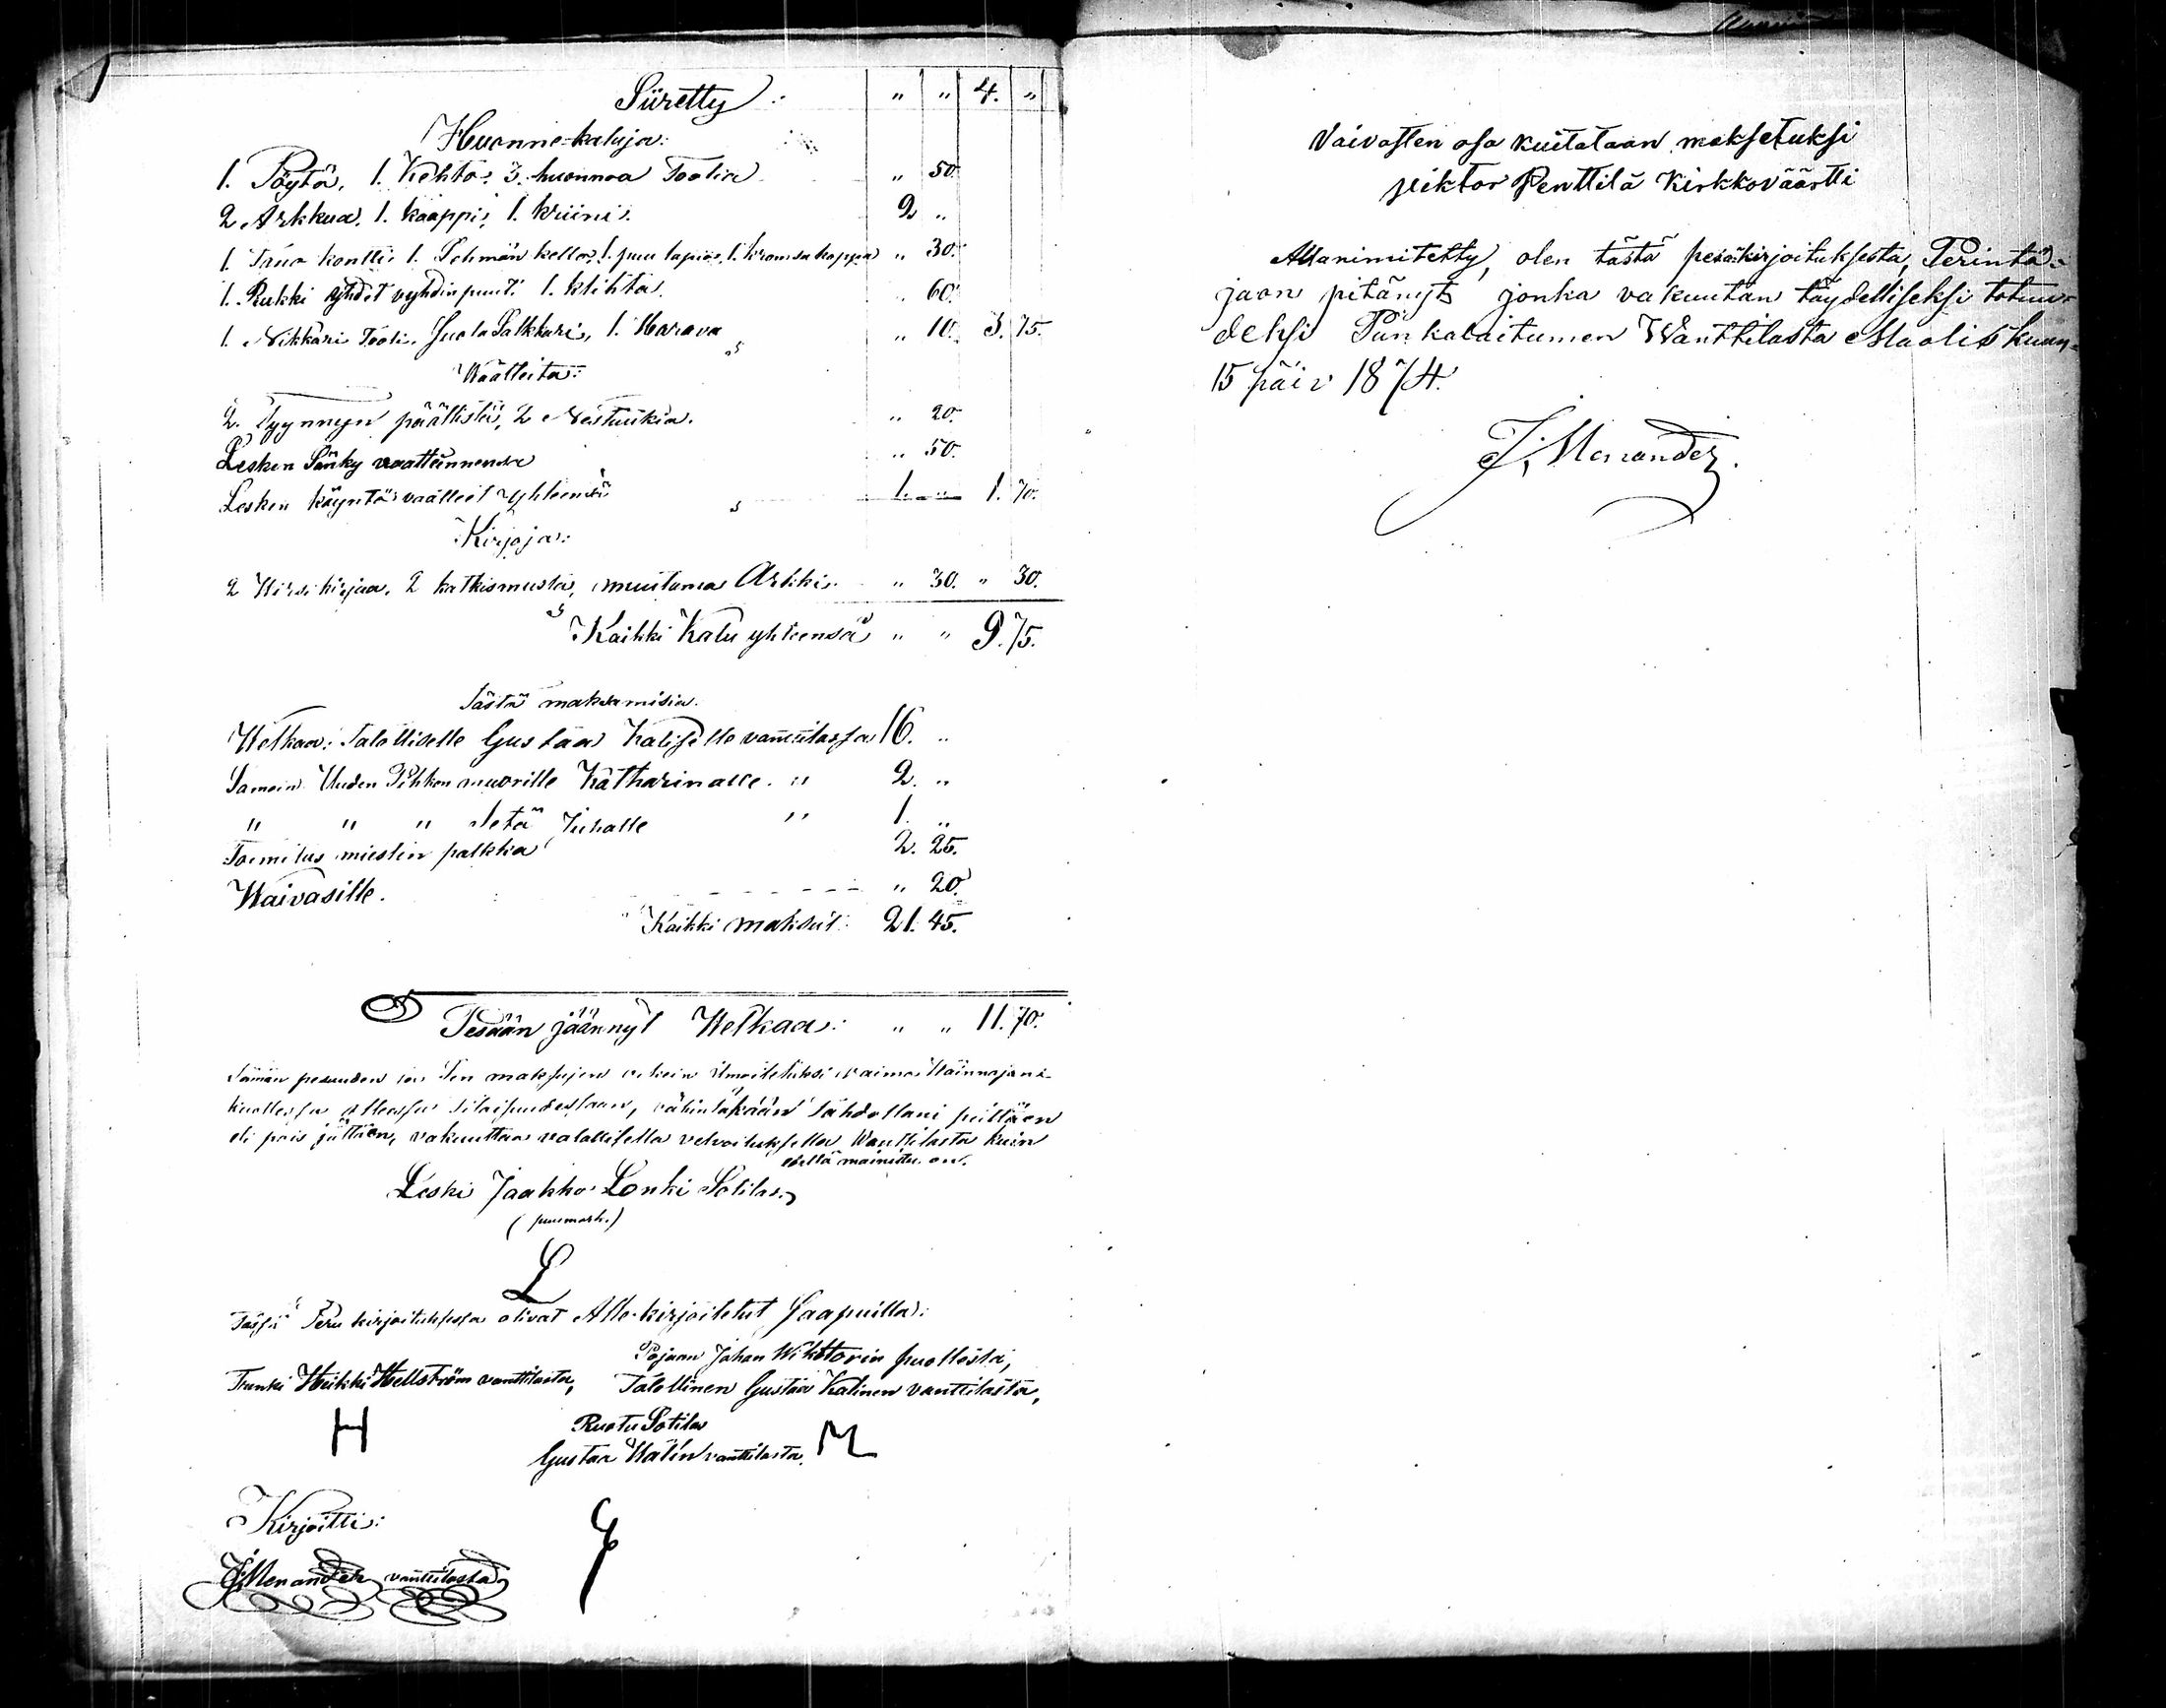 Siiretty: " " 4. "
Huonne-kaluja:
1. Pöytä, 1. Kehto. 3. huonnoa Toolia " 50.
2 Arkkua. 1. kaappi, 1. kriini. 2 "
1. Tuo kontti. 1. Lehmän kello. 1. puu lapio, 1. kromsa kappa " 30.
1. Rukki yhdet vyhdinpuut. 1. klihta. " 60.
1. Nikkari Tooli. Suola Salkkari, 1. Harava " 10. 3. 75.
Waatteita:
2. Tyynnyn päällistä, 2 Nestuukia. " 20.
Lesken Sänky vaatteinnensa " 50.
Lesken käyntö vaatteet yhteensä 1. " 1. 70.
Kirjoja:
2 Wirsikirjaa. 2 katkismusta, muutama Arkki. " 30. " 30.
Kaikki Kalu yhteensä " " 9. 75.
Tästä maksamisia.
Welkaa: Talolliselle Gustaa Kaliselle vanttilassa 16. "
Samoin Uuden Pihkon muorille Katharinalle. " 2. "
" " " Setä Juhalle " 1. "
Toimitus miesten palkka 2. 25.
Waivasille. " 20.
Kaikki maksut: 21. 45.
Pesään jäännyt Welkaa: " " 11. 70.
Tämän pesuuden ja Sen maksujen
tilaisuudestaan, vähintäkään tähdollani peittäen
eli pois jättäen, vakuuttaa valallisella velvoituksella Wanttilasta kuin
edellä mainittu on.
Leski Jaakko Lonki Sotilas.
(puumerk.)
L
Tässä Peru kirjoituksessa olivat Alle-kirjoitetut Saapuilla:
Pojaan Johan Wiktorin puollesta,
Trenki Heikki Hellström vanttilasta, Talollinen Gustaa Kalinen vanttilasta,
H Ruotu Sotilas M
Gustaa Walin vanttilasta.
Kirjoitti:
J. Menander vanttilasta
Vaivasten osa kuitataan maksetuksi
Viktor Penttilä Kirkkoväärtti
Allanimitetty, olen tästä pesäkirjoituksesta, Perintö-
jaon pitänyt jonka vakuutan täydelliseksi totuu-
deksi Punkalaitumen Wanttilasta Maaliskuun
15 päiv 1874.
J. Menander.